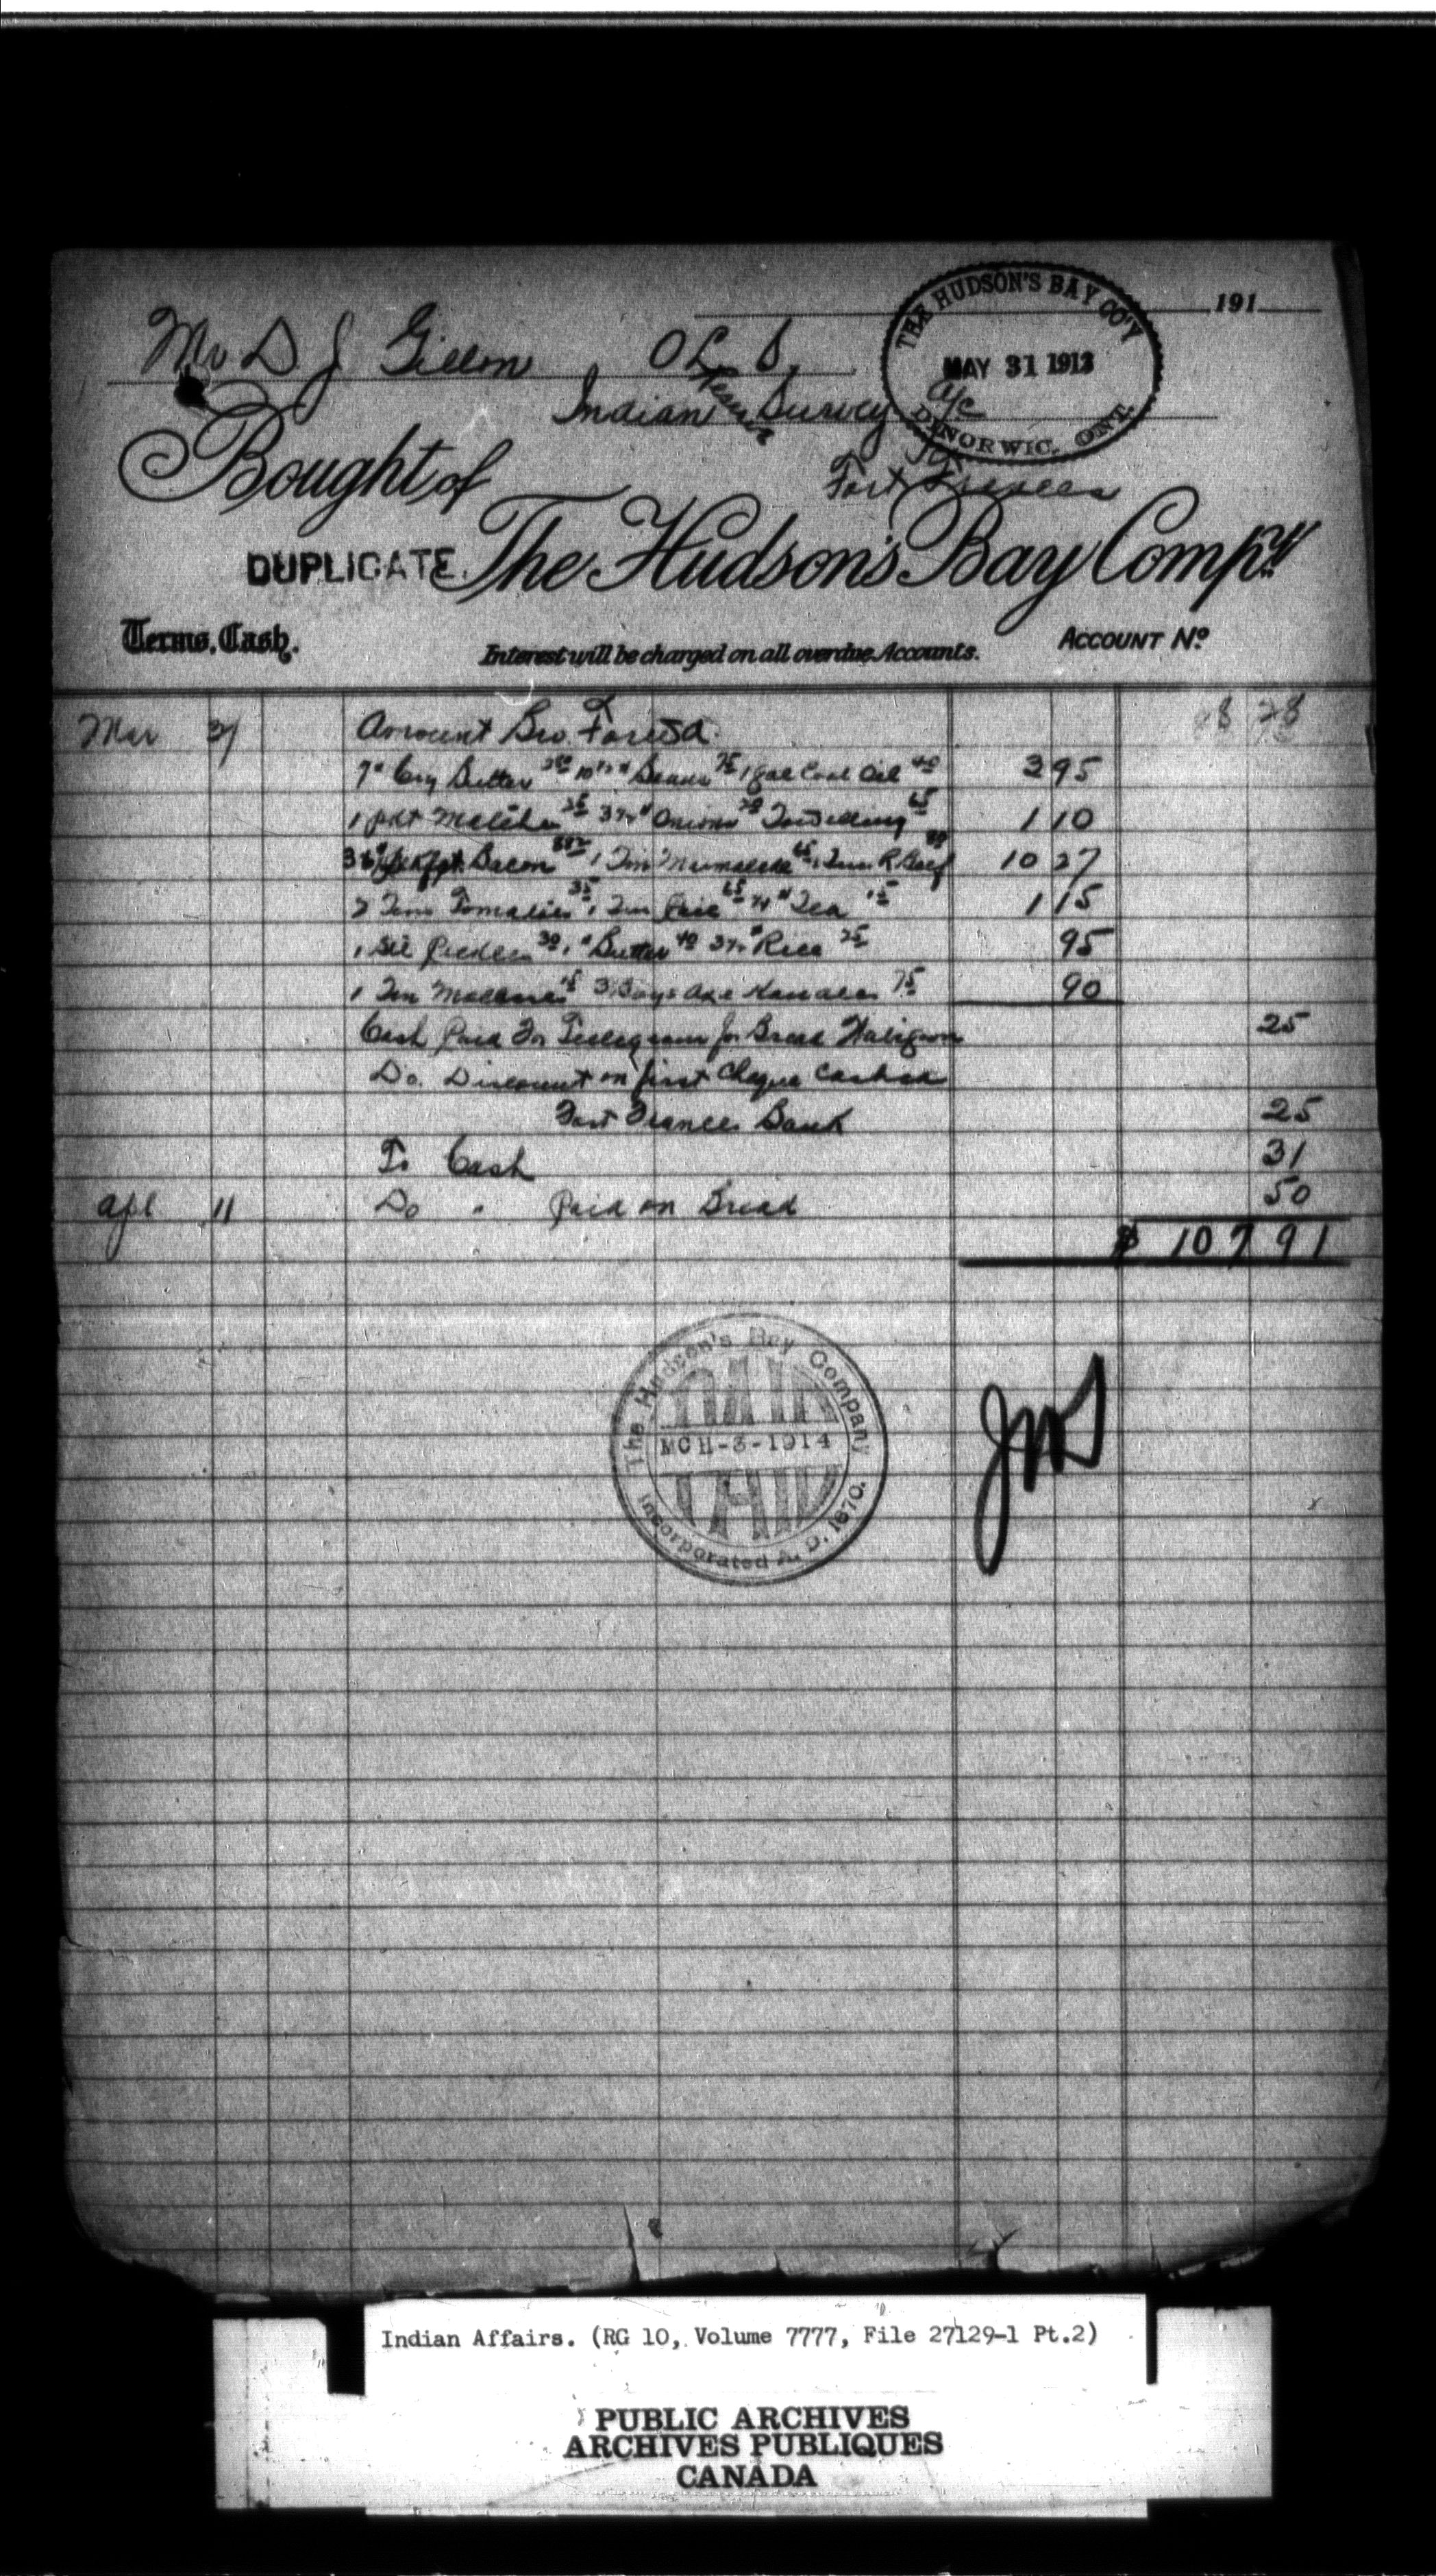 191
THE HUDSON'S BAY CO'Y
MAY 31 1913
DINORWIC, ONT.
Mr D J Gillon O L S.
Indian Reserve Survey a/c
Fort Frances
Bought of
DUPLICATE. The Hudson's Bay Compy
Terms, Cash. Interest will be charged on all overdue Accounts. ACCOUNT No
Mar 31 Amount Bro. Forwd. 88 78
7# Cry Butter 10 # Beans 75 1 gal Coal Oil 40 3 95
1 pkt Matches 25 3 # Onions 20 Towelling 65 1 10
Bacon 1 Tin Marmalade 65 1 Tin R. Beef 10 27
2 Tins Tomatoes 35 1 Tin 65 # Tea 15 1 15
1 Pickles 30 1 # Butter 40 3 # Rice 25 95
1 Tin Molasses 15 3 Boys Axe Handles 75 90
Cash Paid For Telegram for Bread Wabigoon 25
Do. Discount on first Cheque Cashed
Fort Frances Bank 25
To Cash 31
Apl 11 Do " Paid on Bread 50
$ 107 91
The Hudson's Bay Company
PAID
MCH-3-1914
Incorporated A. D. 1670.
Indian Affairs. (RG 10, Volume 7777, File 27129-1 Pt.2)
PUBLIC ARCHIVES
ARCHIVES PUBLIQUES
CANADA